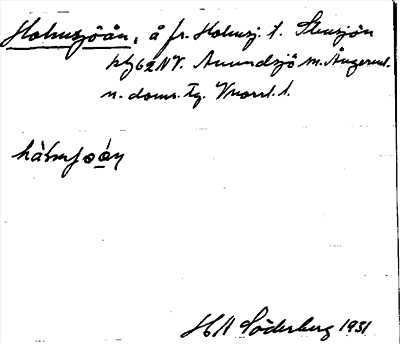 Holmsjöån, å fr. Holmsj. t. Stensjön
kbl 62 NV. Anundsjö sn. Ångerml.
n. doms. Tg. Vnorrl. l.
hòlmſøán
H A Söderberg 1931